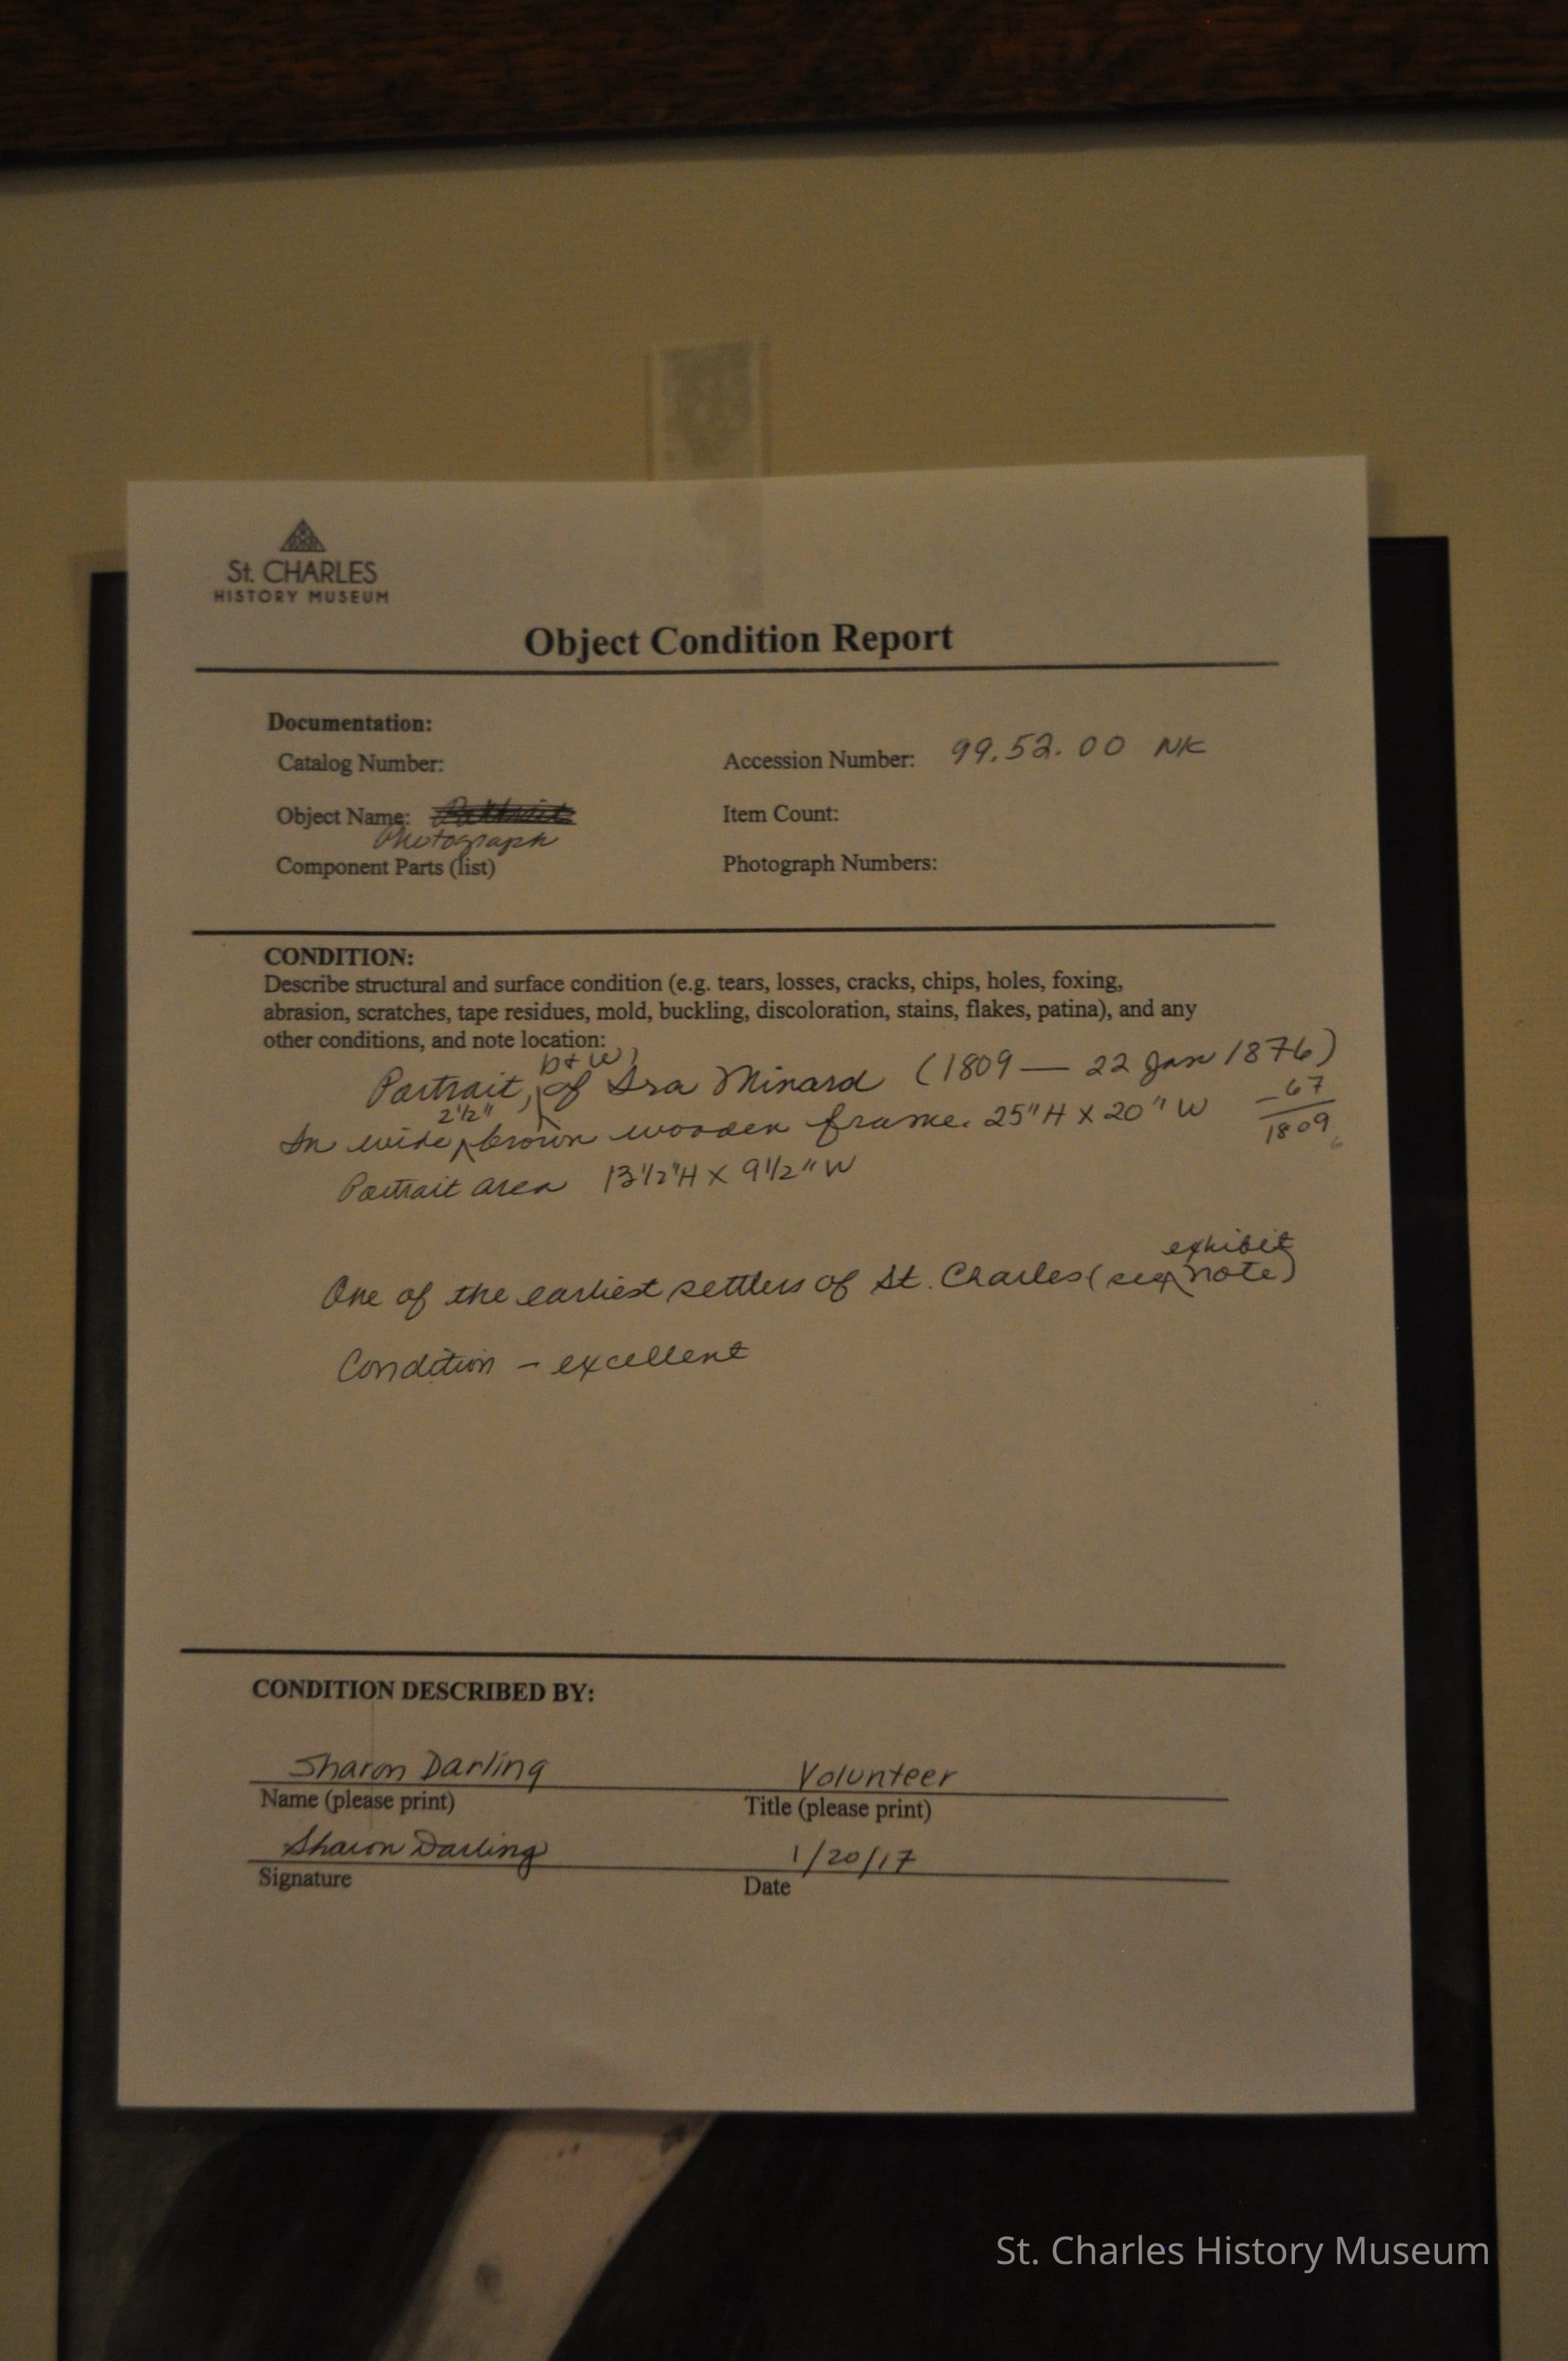 St. CHARLES
HISTORY MUSEUM
Object Condition Report
Documentation:
Catalog Number:
Accession Number: 99.52.00 NK
Object Name:
Photograph
Item Count:
Component Parts (list)
Photograph Numbers:
CONDITION:
Describe structural and surface condition (e.g. tears, losses, cracks, chips, holes, foxing,
abrasion, scratches, tape residues, mold, buckling, discoloration, stains, flakes, patina), and any
other conditions, and note location:
b+w,
Portrait, of Ira Minard (1809 — 22 Jan 1876)
-67
1809
2 1/2"
In wide brown wooden frame. 25"H X 20" W
Portrait area 13 1/2"H X 9 1/2" W
exhibit
One of the earliest settlers of St. Charles (see note)
Condition - excellent
CONDITION DESCRIBED BY:
Sharon Darling
Volunteer
Name (please print)
Title (please print)
Sharon Darling
1/20/17
Signature
Date
St. Charles History Museum